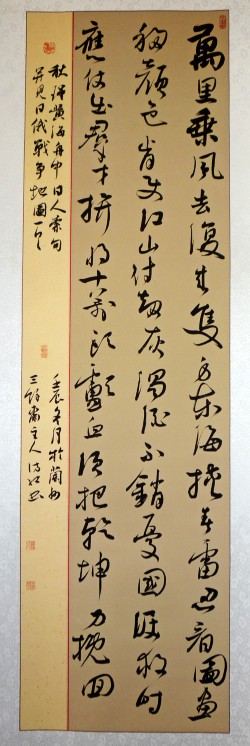 萬里乘風去復來隻身東海挾春雷忍看圖畫
移顏色肯使江山付劫灰濁酒不銷憂國淚救時
應仗出羣才拼將十萬頭顱血須把乾坤力挽回
秋瑾黃海舟中日人索句
并見日俄戰爭地圖
壬辰冬月於蘭州
三餘齋主人